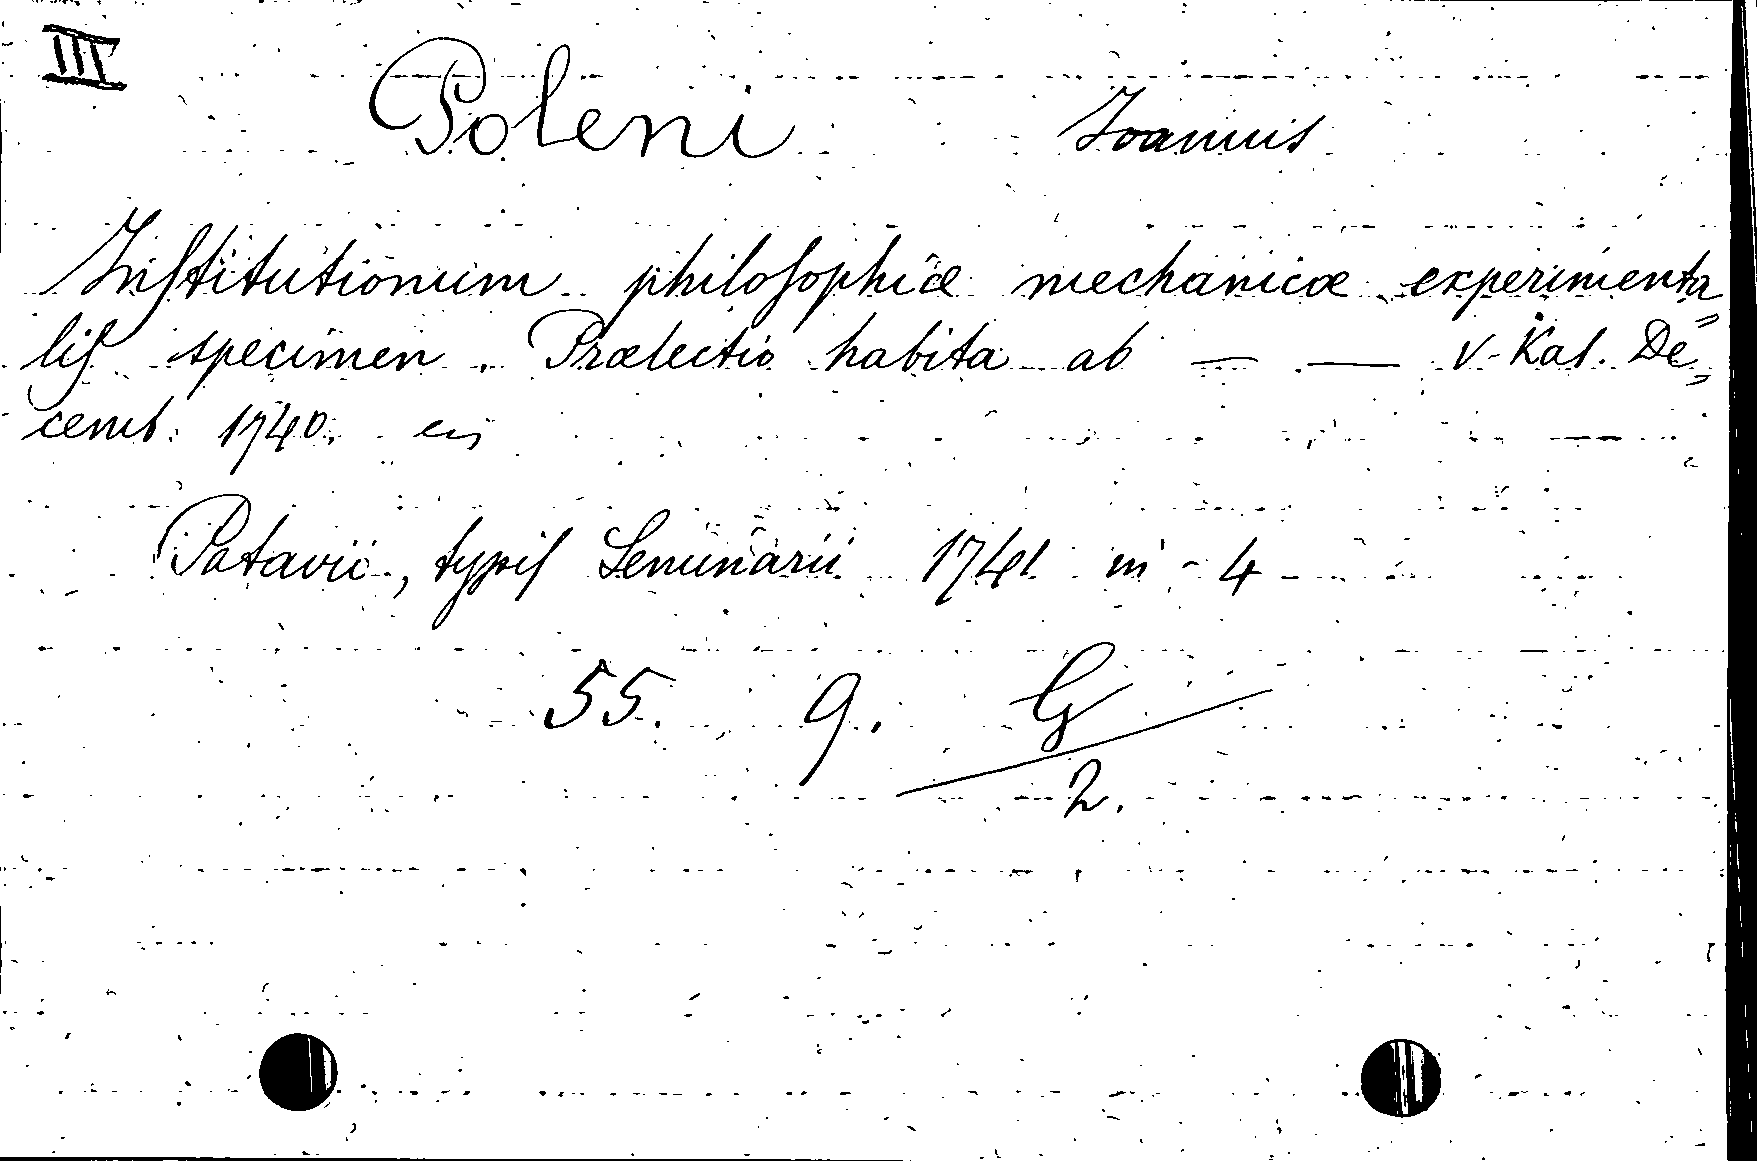 III
Poleni Joannis
Institutionum philosophicæ mechanicæ experimenta„
lis specimen. Prælectio habita ab — — V. Kal. De„
cemb. 1740.
Patavii, typis Seminarii 1741 in - 4
55. 9. G
2.